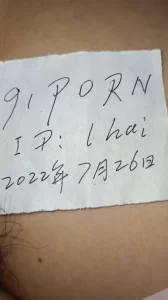 91PORN
ID: lhai
2022年7月26日